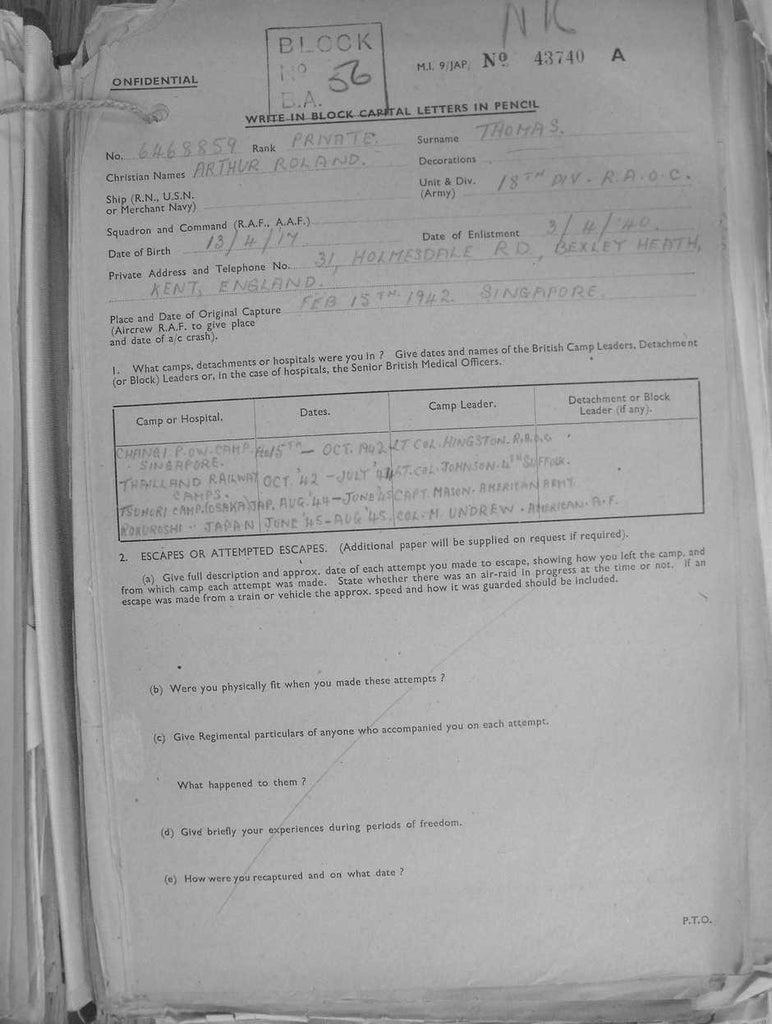 NK
BLOCK
No 56
E.A.
ONFIDENTIAL
M.I. 9/JAP. No 43740 A
WRITE IN BLOCK CAPITAL LETTERS IN PENCIL
No. 6468859 Rank PRIVATE. Surname THOMAS.
Christian Names ARTHUR ROLAND. Decorations
Ship (R.N., U.S.N. or Merchant Navy) Unit & Div. (Army) 18TH DIV. R.A.O.C.
Squadron and Command (R.A.F., A.A.F.)
Date of Birth 13/4/17 Date of Enlistment 3/4/'40.
Private Address and Telephone No. 31, HOLMESDALE RD, BEXLEY HEATH,
KENT, ENGLAND.
Place and Date of Original Capture FEB 15TH 1942. SINGAPORE.
(Aircrew R.A.F. to give place
and date of a/c crash).
1. What camps, detachments or hospitals were you in ? Give dates and names of the British Camp Leaders, Detachment
(or Block) Leaders or, in the case of hospitals, the Senior British Medical Officers.
Camp or Hospital. Dates. Camp Leader. Detachment or Block Leader (if any).
CHANGI P.OW. CAMP. FEB 15TH — OCT. 1942. LT COL. HINGSTON. R.A.O.C
SINGAPORE.
THAILLAND RAILWAY OCT. '42 - JULY '44 LT. COL. JOHNSON. 4TH SUFFOLK.
CAMPS.
TSUMORI CAMP. (OSAKA) JAP. AUG. '44 — JUNE '45 CAPT. MASON. AMERICAN ARMY.
ROKUROSHI - JAPAN JUNE '45 - AUG '45. COL. M. UNDREW. AMERICAN. A.F.
2. ESCAPES OR ATTEMPTED ESCAPES. (Additional paper will be supplied on request if required).
(a) Give full description and approx. date of each attempt you made to escape, showing how you left the camp, and
from which camp each attempt was made. State whether there was an air-raid in progress at the time or not. If an
escape was made from a train or vehicle the approx. speed and how it was guarded should be included.
(b) Were you physically fit when you made these attempts ?
(c) Give Regimental particulars of anyone who accompanied you on each attempt.
What happened to them ?
(d) Give briefly your experiences during periods of freedom.
(e) How were you recaptured and on what date ?
P.T.O.